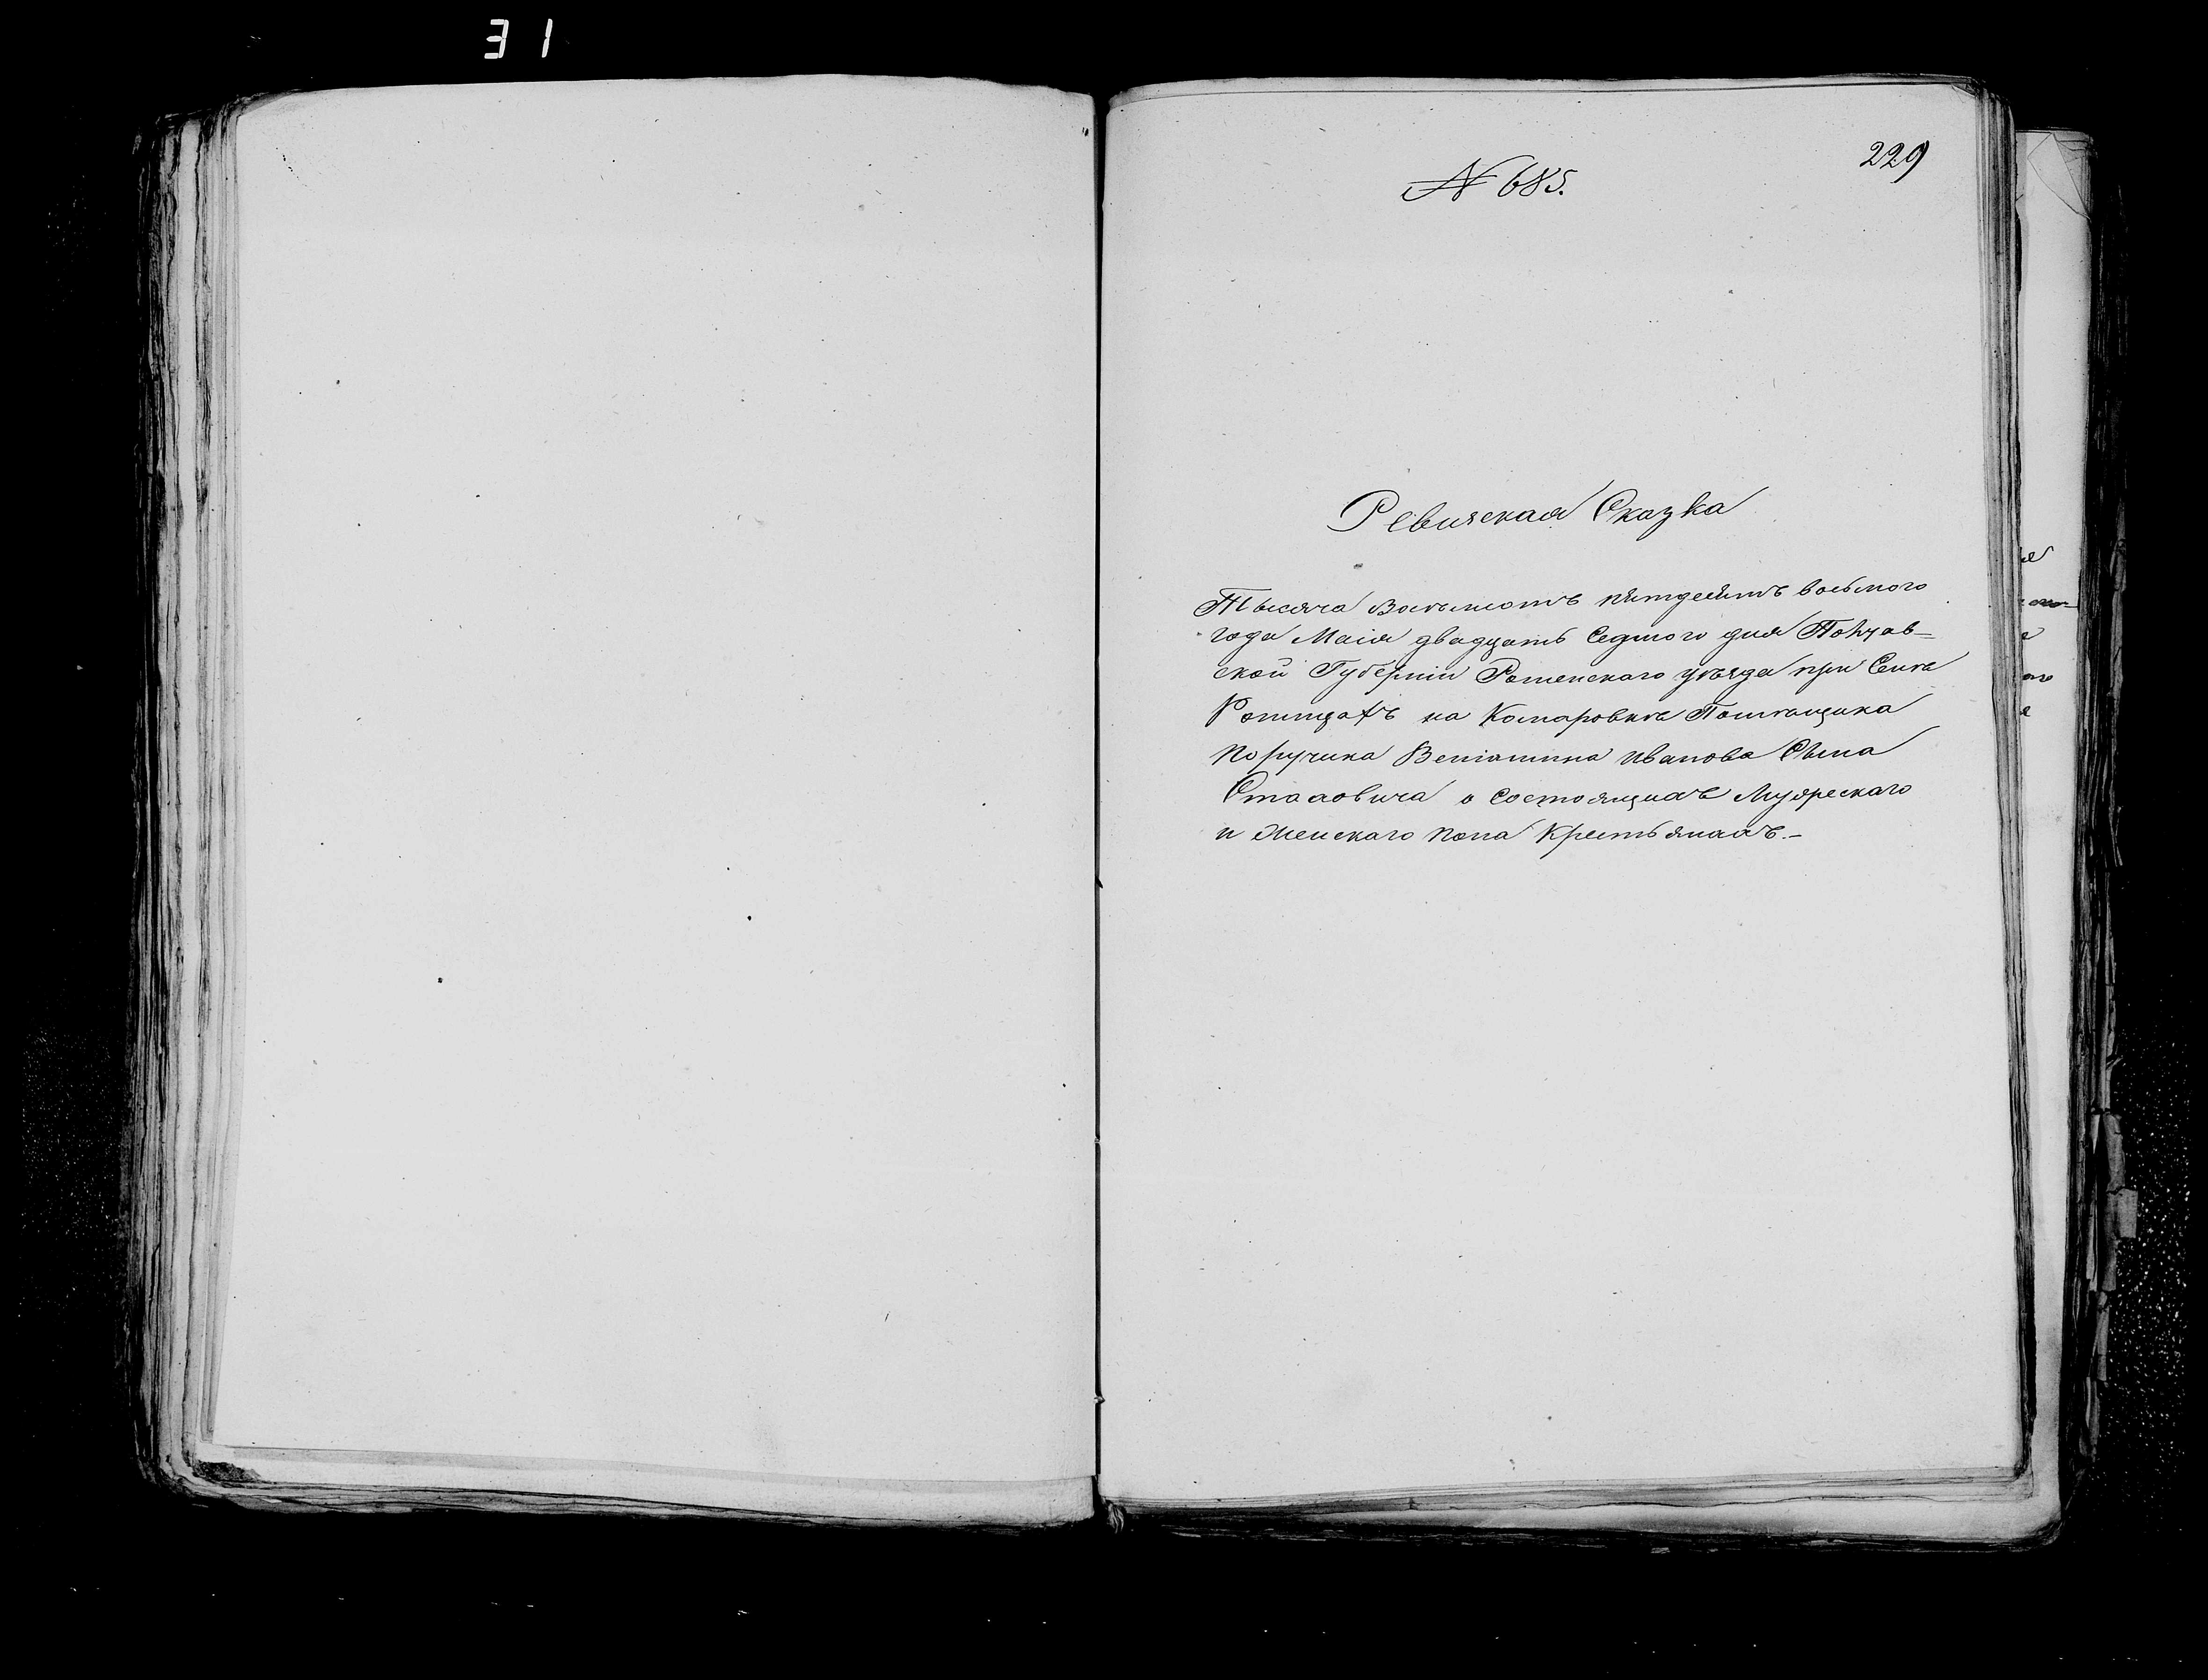 31
229
№ 685.
Ревизская Сказка
Тысяча Восемсотъ пятдесятъ восьмого
года Маія двадцать Седмого дня Полтав=
ской Губерніи Роменскаго уѣзда при Селѣ
на Комаровкѣ Помѣщика
Поручика Веніамина Иванова Сына
о состоящихъ Мужескаго
и Женскаго пола Крестьянахъ.-